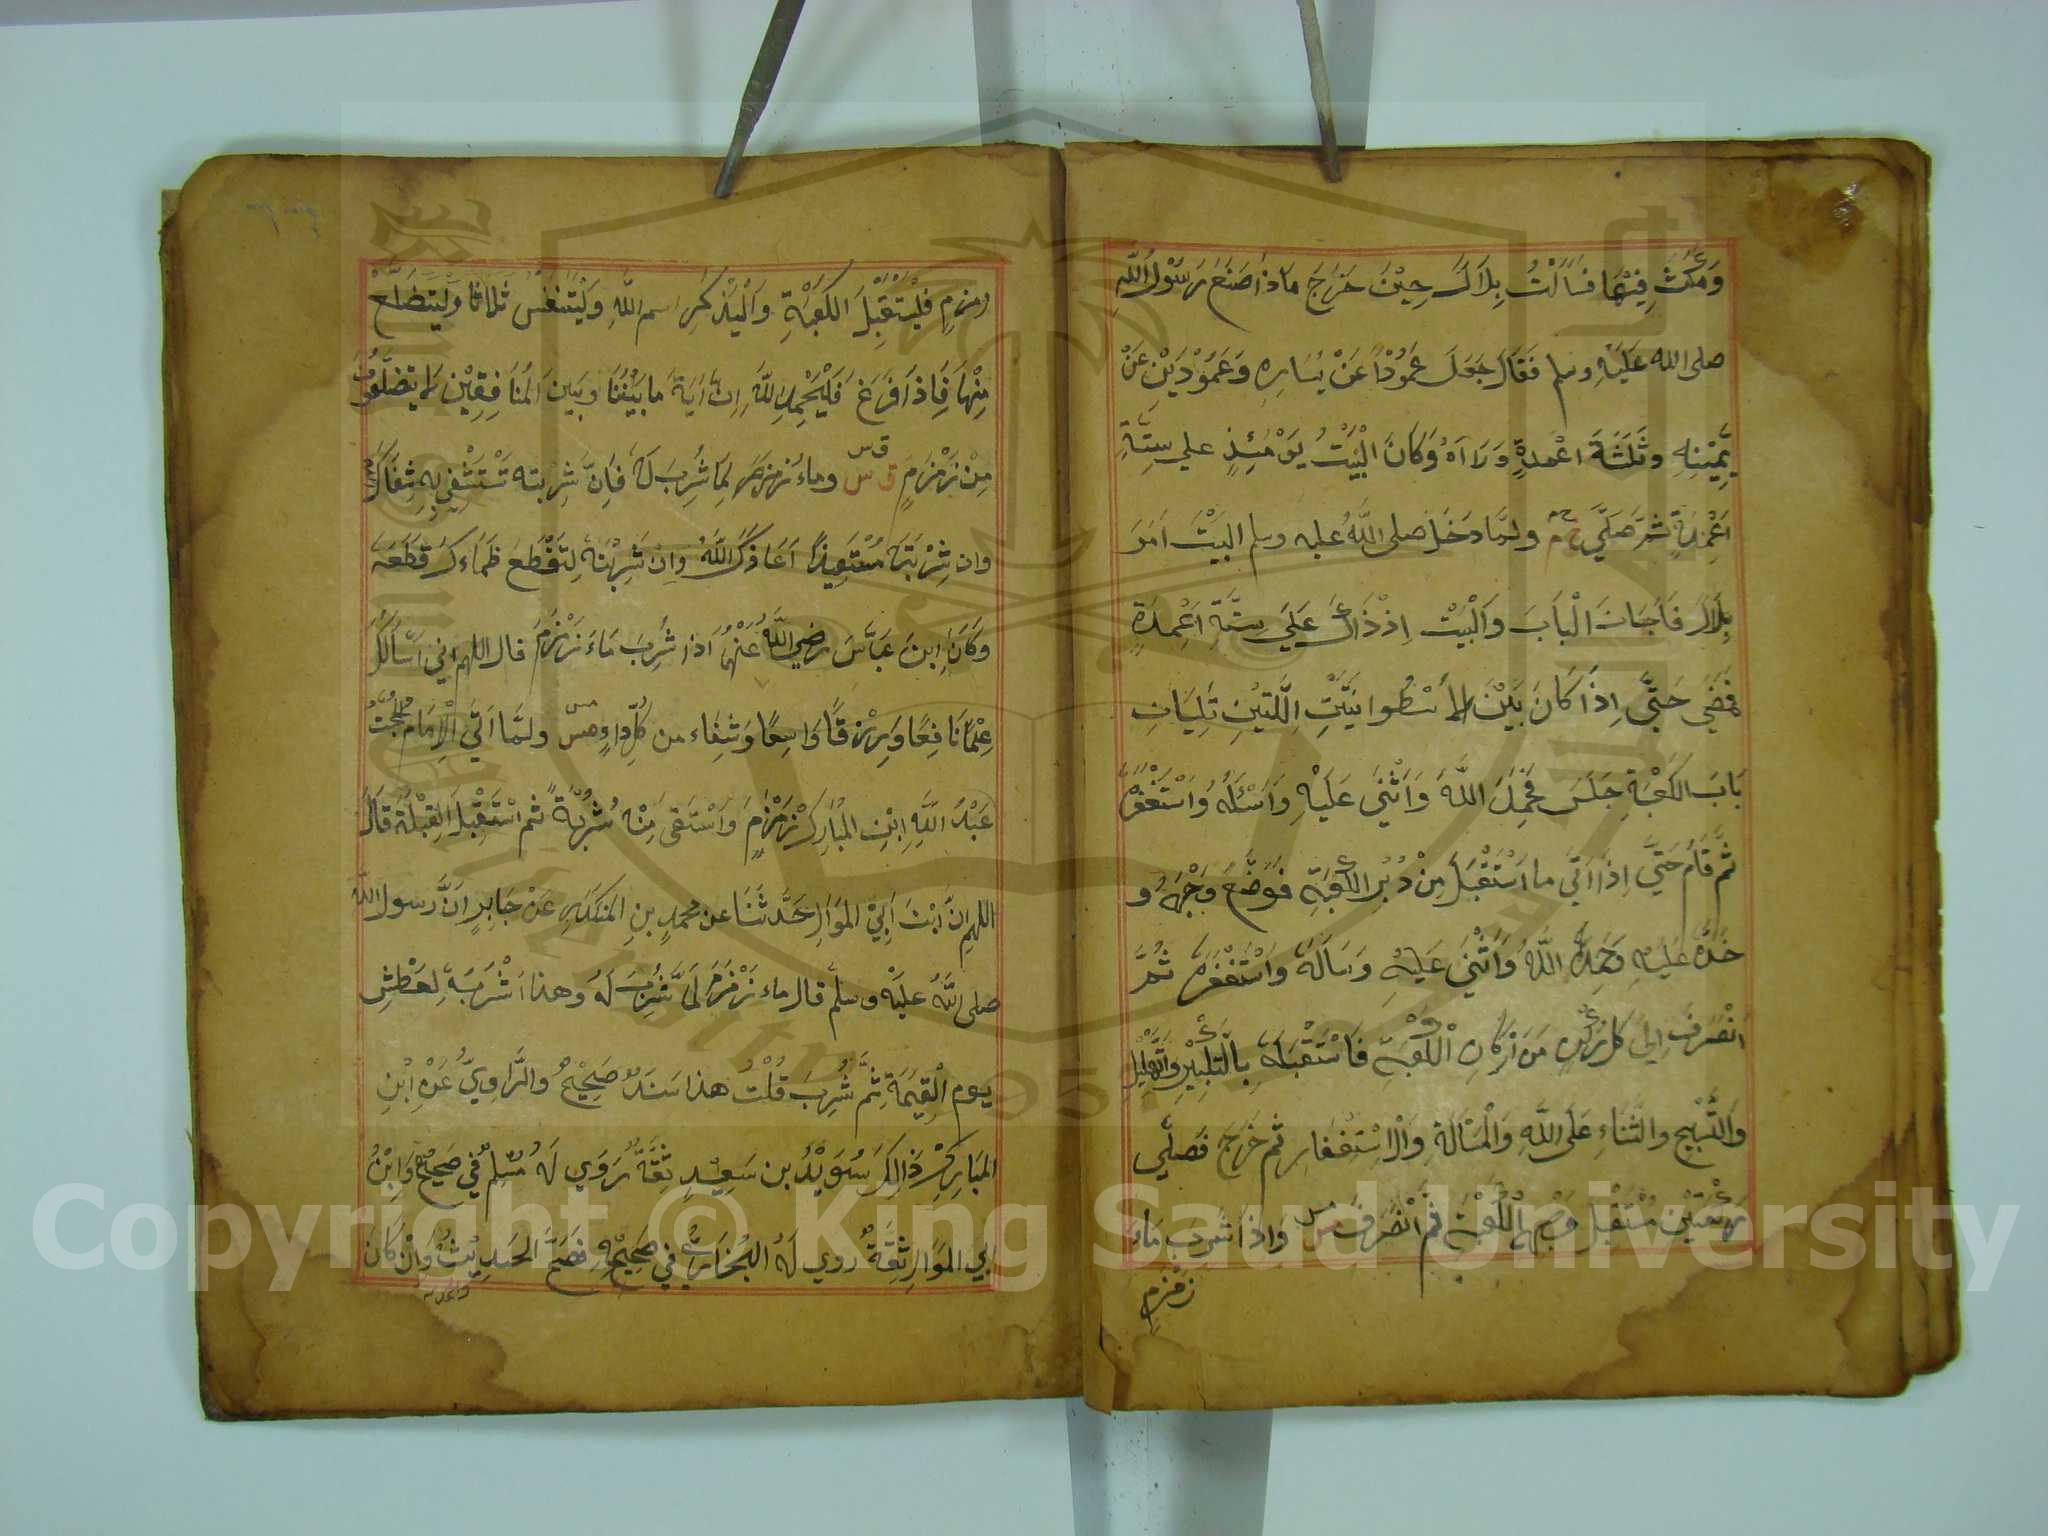 وَمَكَثَ فِيْهَا فَسَاَلْتُ بِلَالًا حِيْنَ خَرَجَ مَاذَا صَنَعَ رَسُوْلُ اللّٰهِ
صلى الله عَلَيْهِ وسلم فَقَالَ جَعَلَ عَمُوْدًا عَنْ يَسَارِهِ وَعَمُوْدَيْنِ عَنْ
يَمِيْنِهِ وثَلَثَةَ اعْمِدَةٍ وَرَاءَهُ وَكَانَ الْبَيْتُ يَوْمَئِذٍ علي سِتَّةِ
اَعْمِدَةٍ ثمَّ صَلَّي خ م ولمَّا دَخَلَ صلى اللّٰهُ عليه وسلم البَيْتَ اَمَرَ
بِلَالًا فَاَجَافَ الْبَابَ وَالْبَيْتُ اِذْذَاكَ عَلَي سِتَّةِ اَعْمِدَةٍ
فَمَضَي حَتَّي اِذَا كَانَ بَيْنَ الْاُسْطُوَانَتَيْنِ اللَّتَيْنِ تَلِيَانِ
بَابَ الكَعْبَةِ جَلَسَ فَحَمِدَ اللّٰهَ وَاَثْنَي عَلَيْهِ وَاَسْئَلُهُ وَاسْتَغْفَرَهُ
ثُمَّ قَامَ حَتَّي اِذَا اَتَي ما اسْتَقْبَلَ مِنْ دُبُرِ الكَعْبَةِ فَوَضَعَ وَجْهَهُ و
خَدَّهُ عَلَيْهِ وَحَمِدَ اللّٰهَ وَاَثْنَي عَلَيْهِ وَسَاَلَهُ وَاسْتَغْفَرَهُ ثُمَّ
انْصَرَفَ اِلَي كُلِّ رُكْنٍ مِنْ اَرْكَانِ الْكَعْبَةِ فَاسْتَقْبَلَهُ بِالتَّكْبِيْرِ وَالتَّهْلِيْلِ
وَالتَّسْبِيْحِ والثَّنَاءِ عَلَي اللّٰهِ وَالْمَسْاَلَةِ وَالْاِسْتِغْفَارِ ثم خَرَجَ فَصَلَّي
رَكْعَتَيْنِ مُسْتَقْبِلَ وَجْهِ الْكَعْبَةِ ثم انْصَرَفَ س وَاِذَا شَرِبَ مَاءَ
زمْزَم
زمزم فَلْيَسْتَقْبِلِ الكَعْبَةِ وَالْيَذْكُرِ اسم اللّٰهِ وَلْيَتَنَفَّسْ ثلاثا وَلْيَتَضَلَّعْ
مِنْهَا فَاِذَا فَرَغَ فَلْيَحْمَدِ اللّٰهَ اِنَّ اٰيَةَ مَا بَيْنَنَا وبَيْنَ الْمُنَافِقِيْنَ لا يَتَضَلَّعُوْنَ
مِنْ زَمْزَمَ ق س وماءُ زمزمَ لِمَا شُرِبَ لَهُ فَاِنْ شَرِبْتَه تَسْتَشْفِي بِهِ شَفَاكَ اللّٰه
وان شَرِبْتَهُ مُسْتَعِيْذًا اَعَاذَكَ اللّٰهُ وَاِنْ شَرِبْتَهُ لِتَقْطَعَ ظَمَاءَكَ قَطَعَهُ
وَكَانَ ابنُ عَبَّاسَ رضي اللّٰهُ عَنْهُمَا اذا شَرِبَ مَاءَ زَمْزَمَ قال اللهم اني اَسْاَلُكَ
عِلْمًا نَافِعًا وَرِزْقًا وَاسِعًا وَشِفَاء من كُلِّ دَاءٍ مس ولمَّا اَتَي الْاِمَامُ الْحُجَّةُ
عَبْدُ اللّٰهِ ابْنِ المُبَارِكْ زمْزَمَ وَاسْتَقَى مِنْه شُرْبَةً ثم اسْتَقْبَلَ القِبْلَةَ قَالَ
اللهم انَّ ابْنَ اَبِيْ المَوَالِ حَدَّثَنَا عن محمدِ بنِ المنكَدَرِ عَنْ جَابِرٍ اَنَّ رسول اللّٰه
صلى اللّٰهُ عليهْ وسلَّم قال ماء زَمْزَمَ لِمَا شُرِبَ لَهُ وهذا اَشْرَبُهُ لِعَطْشِ
يوم الْقِيٰمَةِ ثمَّ شَرِبَ قُلْتُ هذا سَنَدٌ صَحِيْحٌ والرَّاوِيُّ عَنْ اِبْنِ
المبَارِكْ ذَالِكَ سُوَيْدُ بن سَعِيْدٍ ثِقَةٌ رَوَي لَهُ مُسْلِمٌ فِي صَحِيْحِهِ وَابْنُ
ابي المَوَالِ ثِقَةٌ روي لَهُ البُخَارِيُّ فِي صَحِيْحِهِ فَصَحَّ الحَدِيْثُ وَاِنْ كَانَ
والحمد لله
Copyright © King Saud University